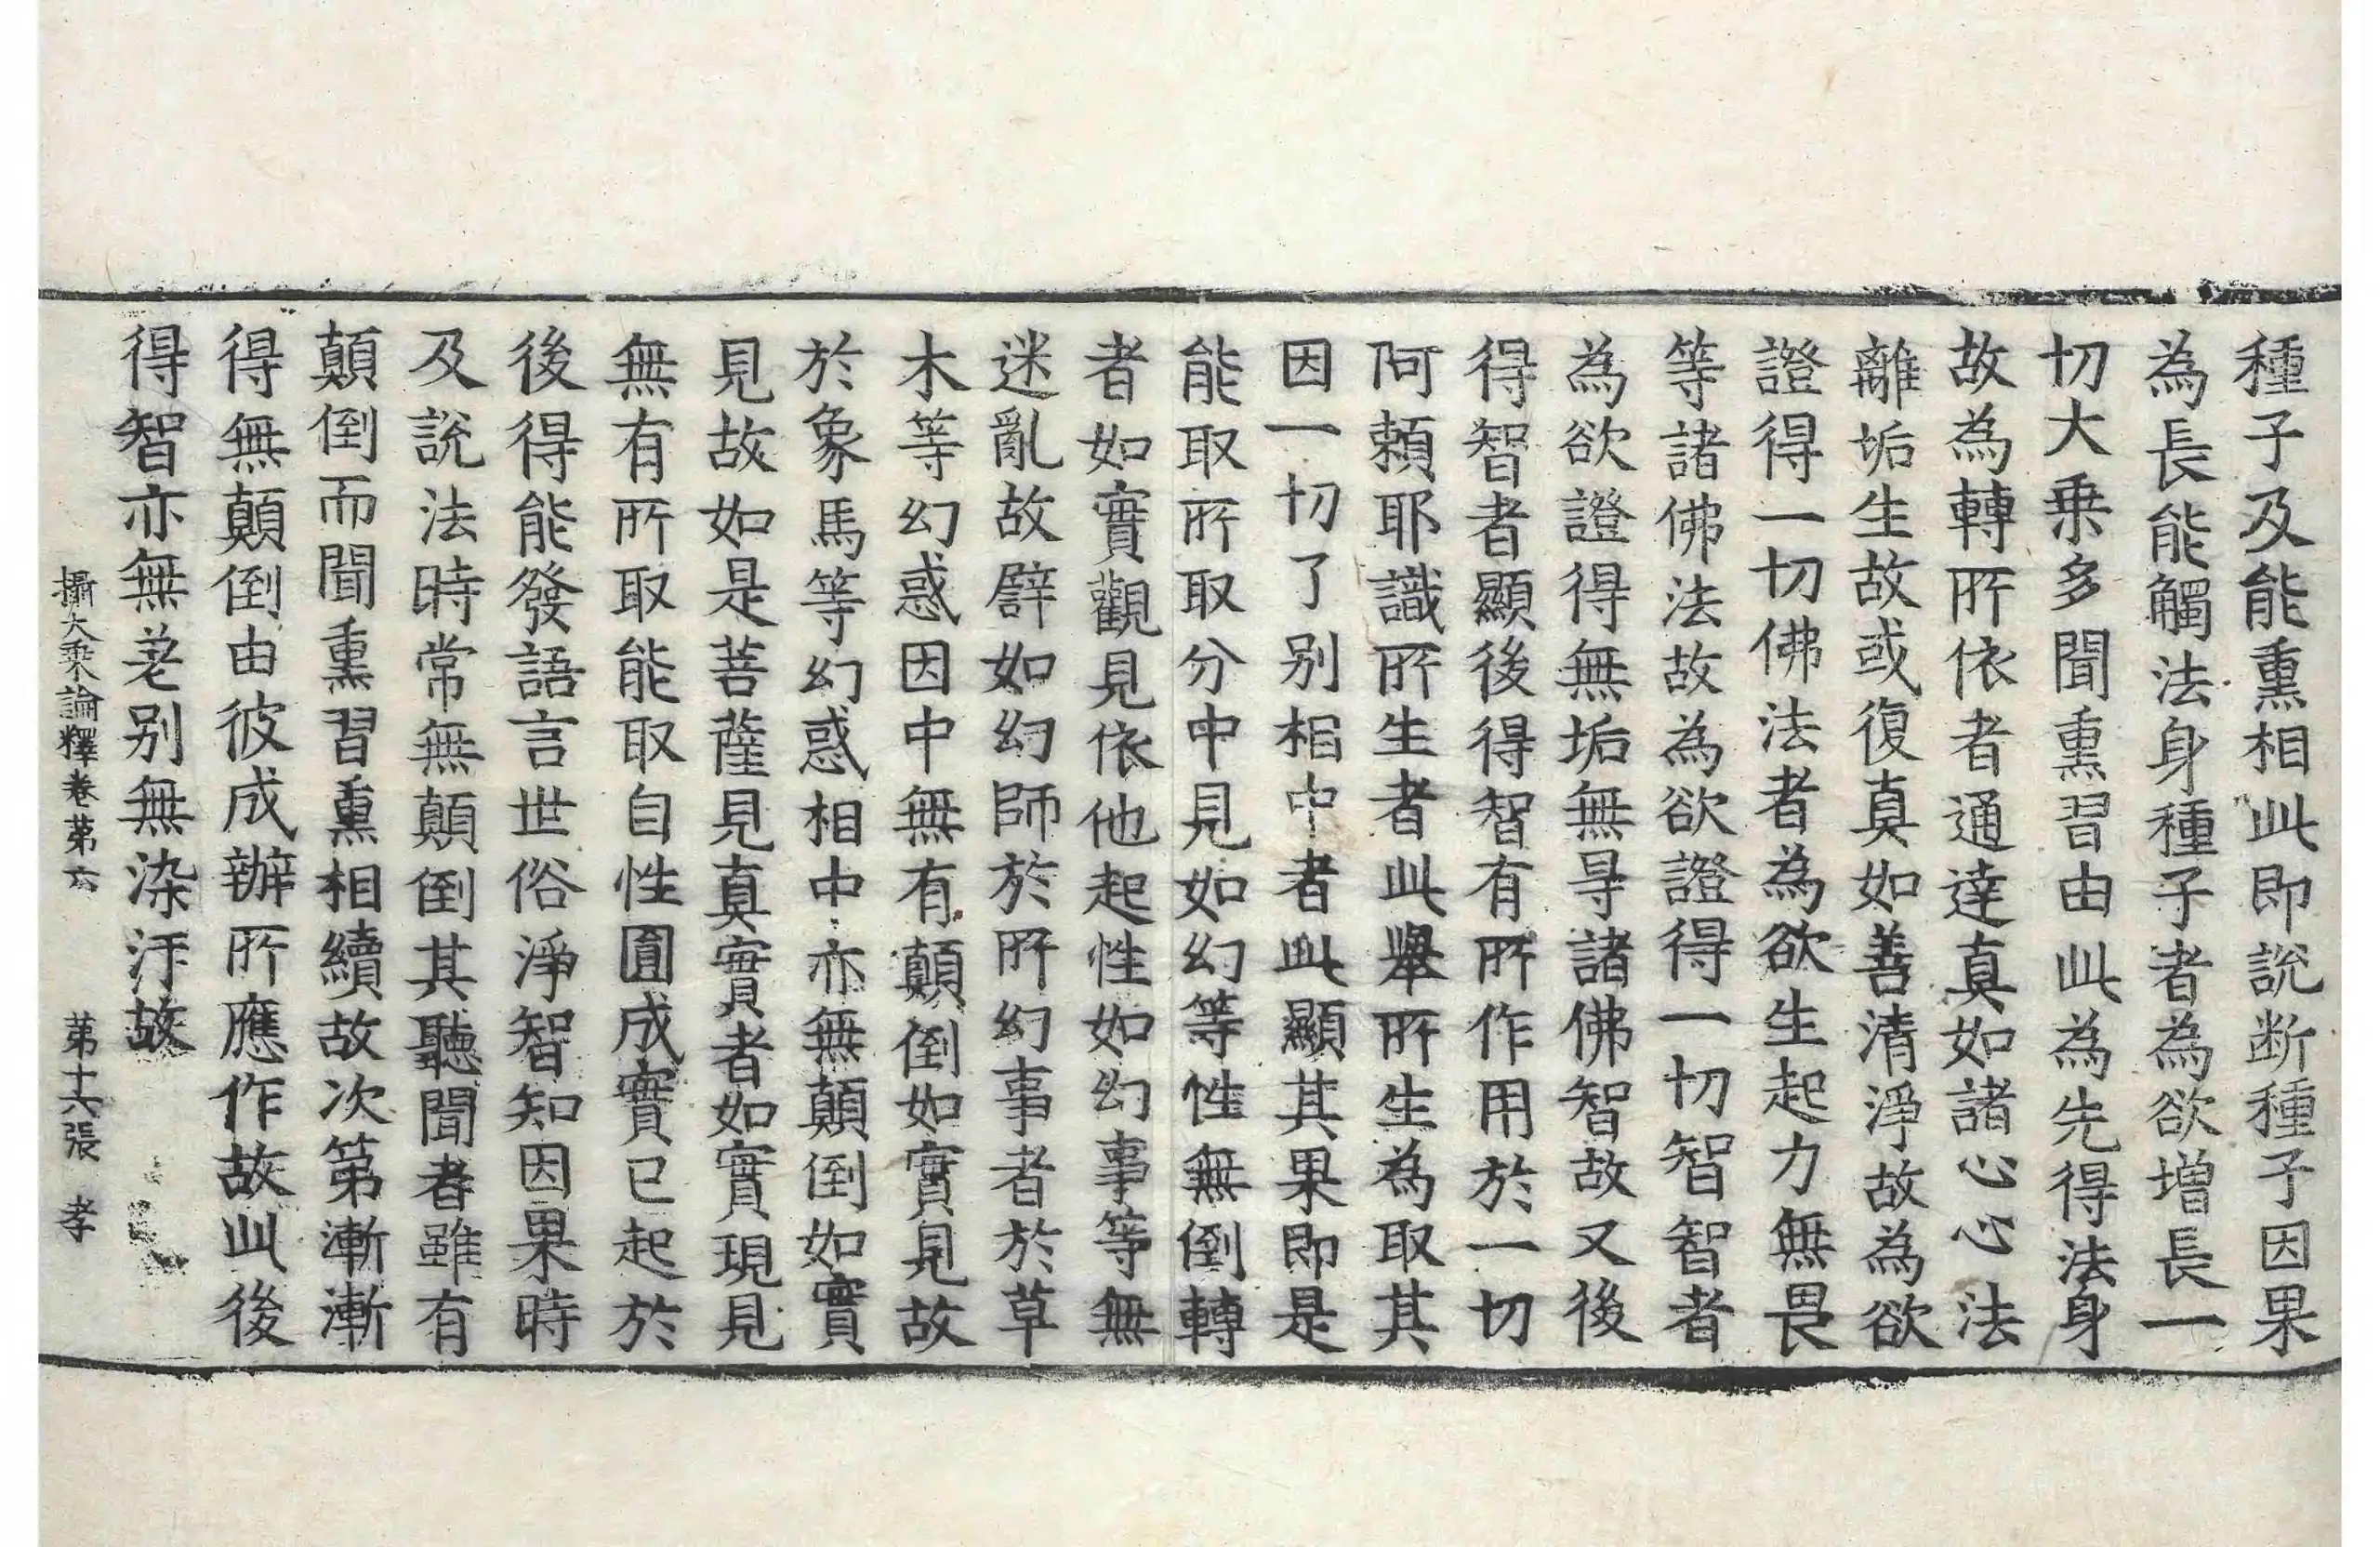 種子及能熏相此即説斷種子因果
為長能觸法身種子者為欲增長一
切大乗多聞熏習由此為先得法身
故為轉所依者通達真如諸心心法
離垢生故或復真如善清淨故為欲
證得一切佛法者為欲生起力無畏
等諸佛法故為欲證得一切智智者
為欲證得無垢無㝵諸佛智故又後
得智者顯後得智有所作用於一切
阿賴耶識所生者此舉所生為取其
因一切了别相中者此顯其果即是
能取所取分中見如幻等性無倒轉
者如實觀見依他起性如幻事等無
迷亂故譬如幻師於所幻事者於草
木等幻惑因中無有顛倒如實見故
於象馬等幻惑相中亦無顛倒如實
見故如是菩薩見真實者如實現見
無有所取能取自性圓成實已起於
後得能發語言世俗淨智知因果時
及説法時常無顛倒其聽聞者雖有
顛倒而聞熏習熏相續故次第漸漸
得無顛倒由彼成辦所應作故此後
得智亦無差别無染汙故
攝大乗論釋卷第六 第十六張 孝